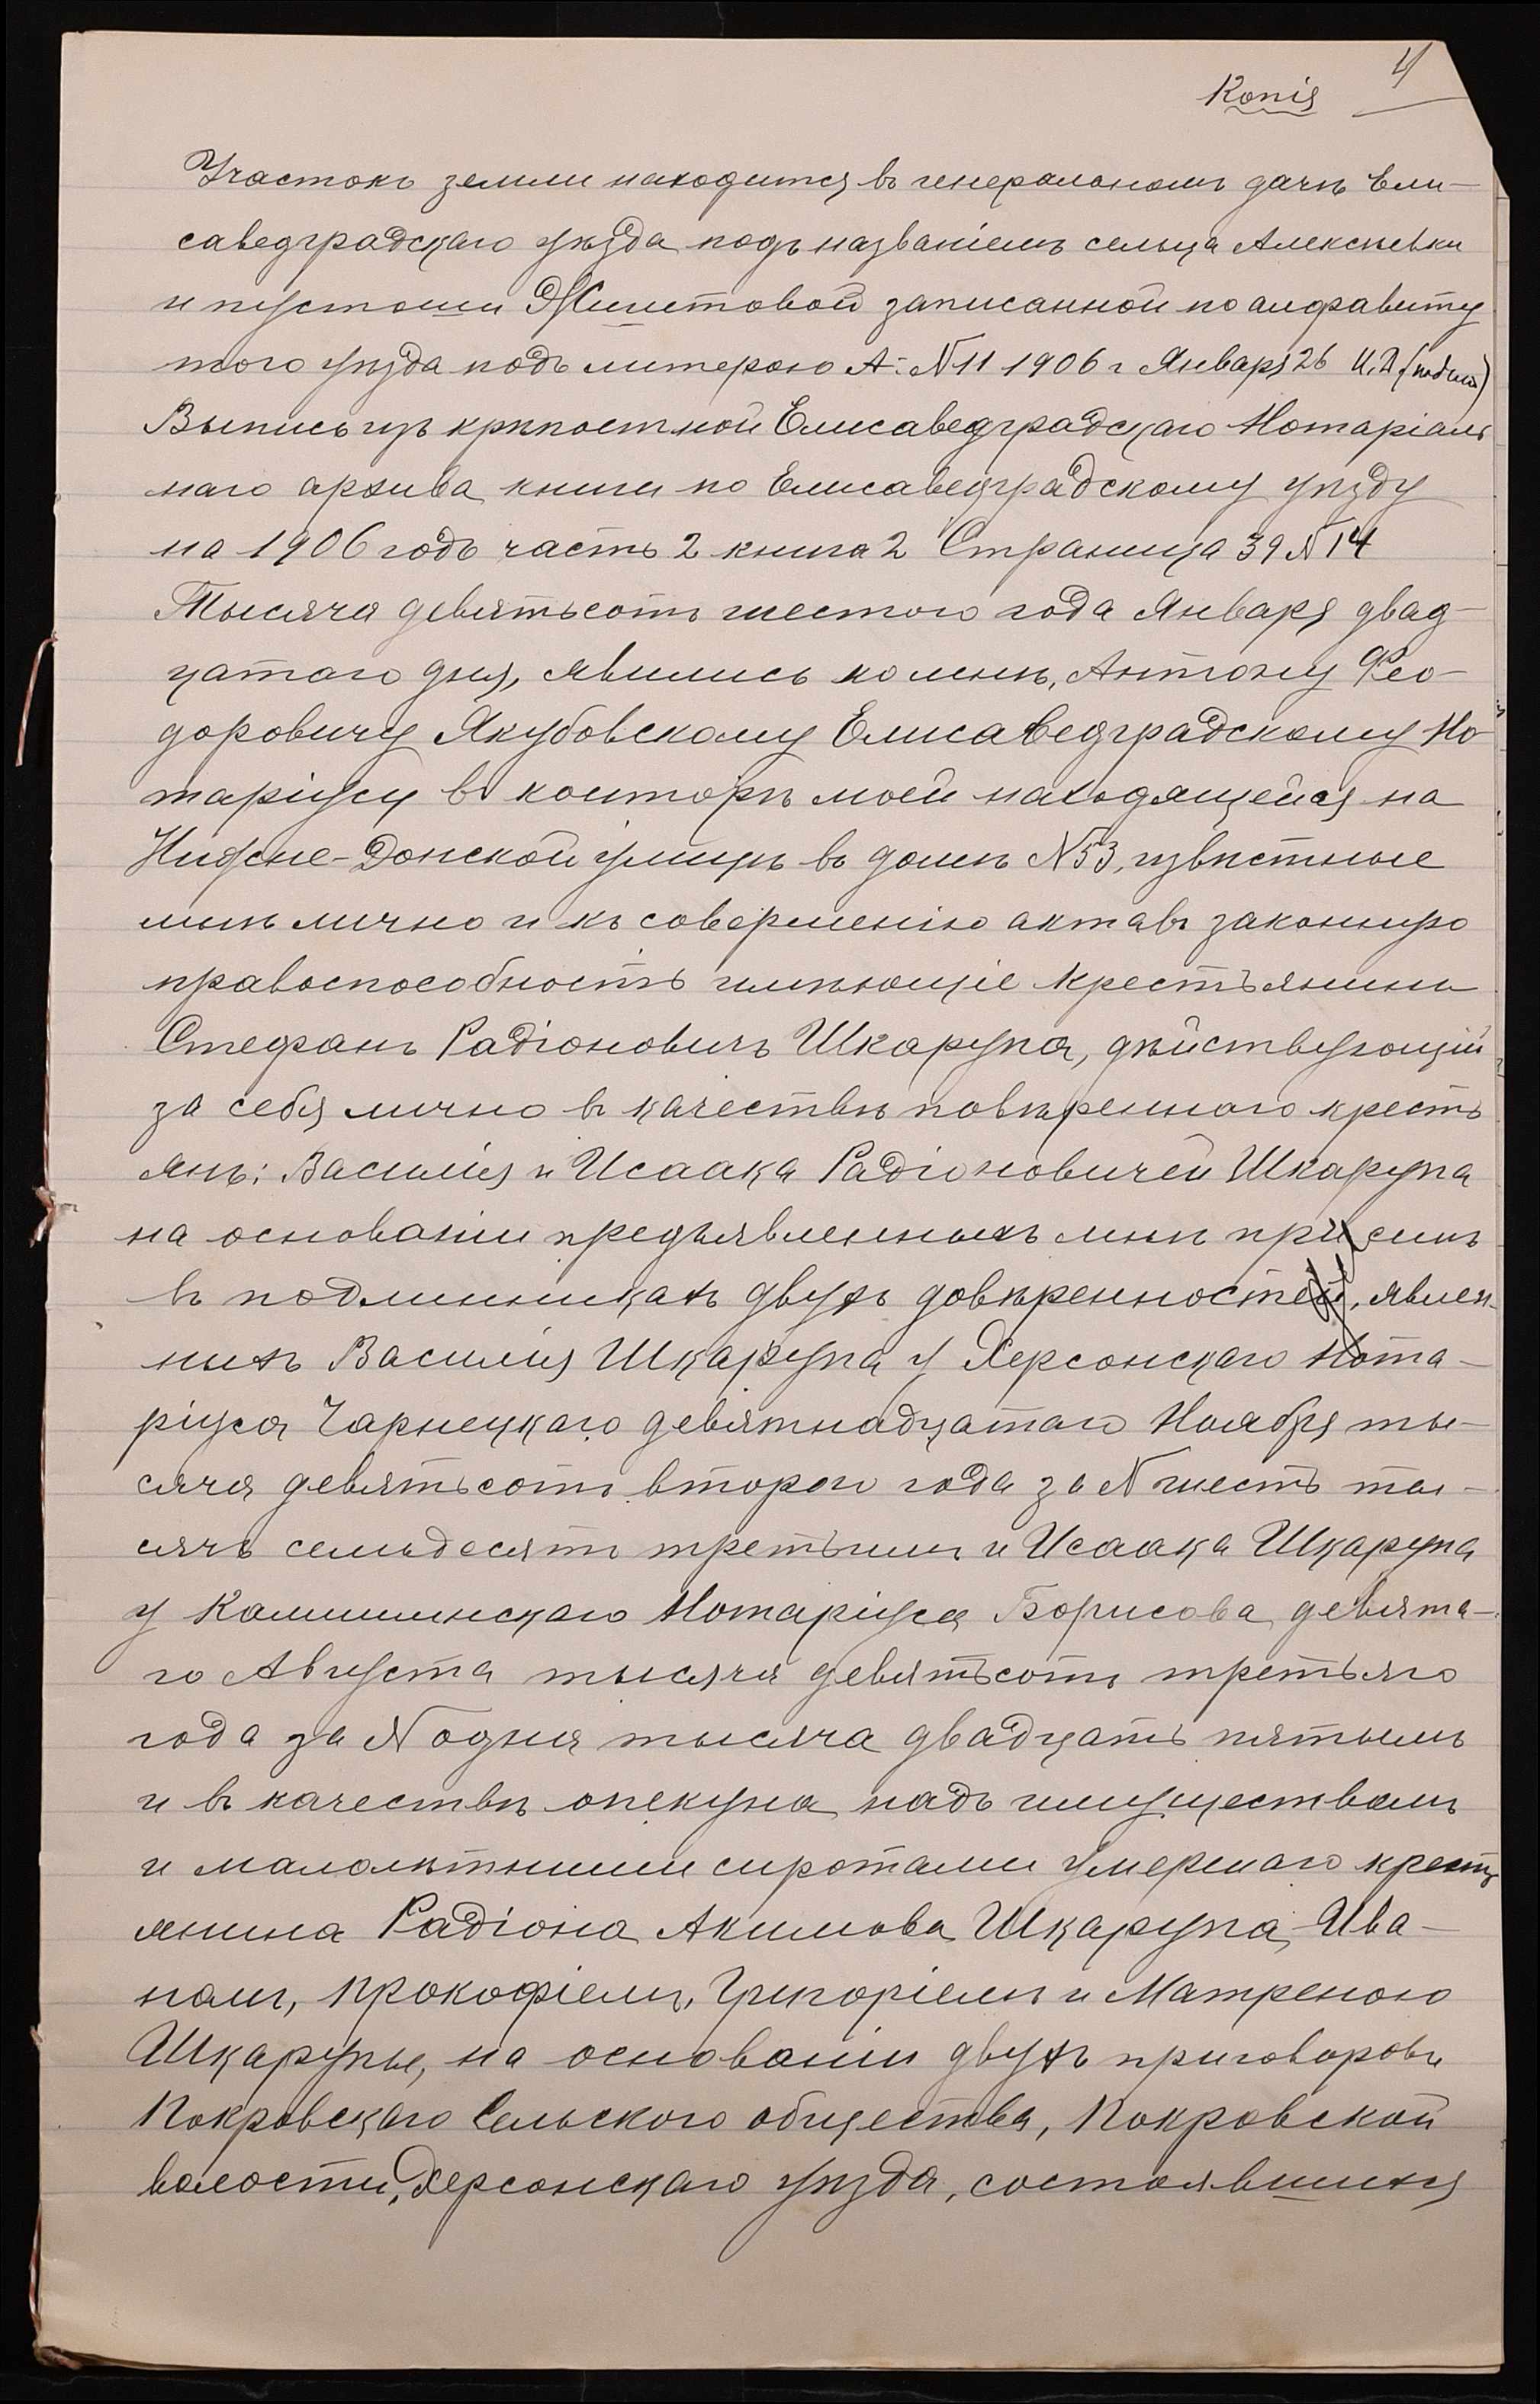 4
Копія
Участокъ земли находится въ генеральномъ дачѣ Ели-
саведградскаго уѣзда подъ названіемъ сельца Алексѣевки
и пустоши Житовой записанной по алфавиту
того уѣзда подъ литерою А: № 11 1906 г Января 26 И.Д. (подпись)
Выпись изъ крѣпостной Елисаведградскаго Нотаріаль
наго архива книги по Елисаведградскому уѣзду
на 1906 годъ часть 2 книга 2 Страница 39 № 14
Тысяча девятьсотъ шестого года Января двад-
цатаго дня, явились ко мнѣ, Антону Фео-
доровичу Якубовскому Елисаведградскому Но
таріусу въ конторѣ моей находящейся на
Нижне-Донской улицѣ въ домѣ № 53, извѣстные
мнѣ лично и къ совершенію актавъ законную
правоспособность имѣющіе крестьянинъ
Стефанъ Радіоновичъ Шкарупа, дѣйствующій
за себя лично въ качествѣ повѣреннаго кресть
янъ: Василія и Исаака Радіоновичей Шкарупа
на основаніи предъявленныхъ мнѣ при семъ
въ подлинникахъ двухъ довѣренностей, явлен-
ныхъ Василія Шкарупа у Херсонскаго Нота-
ріуса Чарнецкаго девятнадцатаго Ноября ты-
сяча девятьсотъ второго года за № шесть ты-
сячъ семьдесятъ третьимъ и Исаака Шкарупа
у Калишинскаго Нотаріуса Борисова девята-
го Августа тысяча девятьсотъ третьяго
года за № одна тысяча двадцать пятымъ
и въ качествѣ опекуна надъ имуществомъ
и малолѣтними сиротами умершаго кресть
янина Радіона Акимова Шкарупа, Ива-
номъ, Прокофіемъ, Григоріемъ и Матреною
Шкарупы, на основаніи двухъ приговоровъ
Покровскаго Сельского общества, Покровской
волости, Херсонскаго уѣзда, состоявшихся